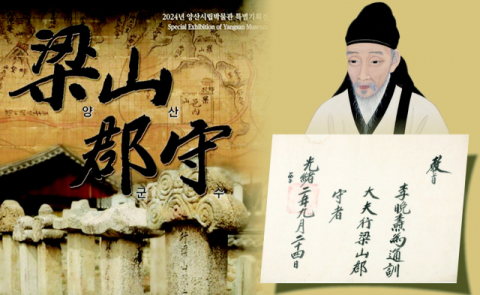 2024년 양산시립박물관 특별기획전
Special Exhibition of Yangsan Museum
梁山
양 산
郡守
군 수
敎旨
李晩燾爲通訓
大夫行梁山郡
守者
光緖二年九月二十四日